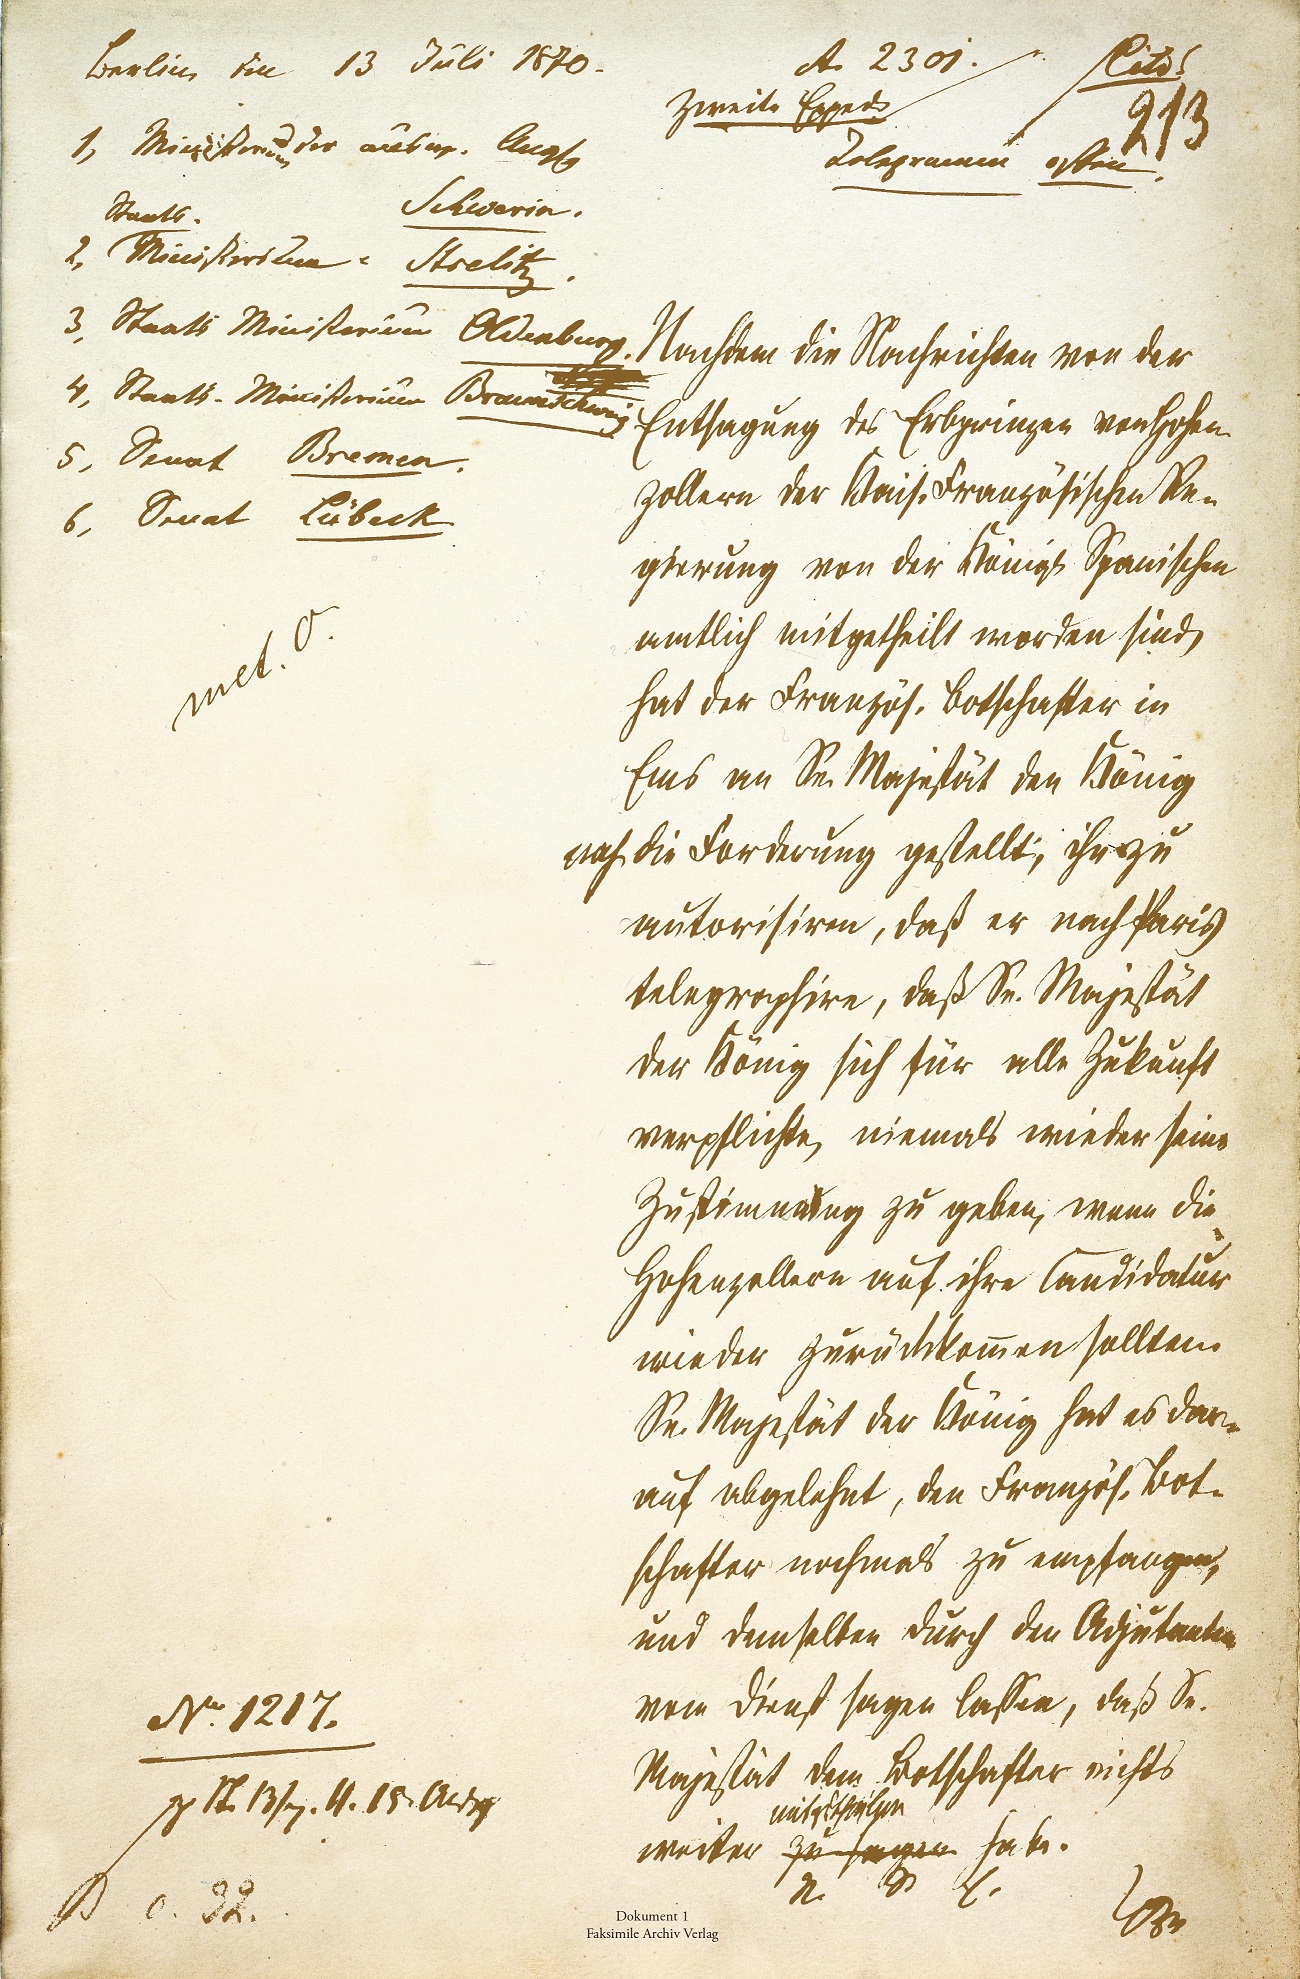 Berlin, den 13 Juli 1870.
A. 2301.
Cito!
Zweite Exped.
213
Telegramm offen.
1, Ministerium der auswr. Angg
Schwerin.
Staats-
2, Ministerium - Strelitz.
3, Staats Ministerium Oldenburg.
4, Staats-Ministerium Braunschweig
5, Senat Bremen.
6, Senat Lübeck
met. O.
Nachdem die Nachrichten von der
Entsagung des Erbprinzen von Hohen-
zollern der Kais. Französischen Re-
gierung von der Königl. Spanischen
amtlich mitgetheilt worden sind,
hat der Französ. Botschafter in
Ems an Se. Majestät den König
noch die Forderung gestellt, ihn zu
autorisiren, daß er nach Paris
telegraphire, daß Se. Majestät
der König sich für alle Zukunft
verpflichte, niemals wieder seine
Zustimmung zu geben, wenn die
Hohenzollern auf ihre Candidatur
wieder zurückkom̅en sollten.
Se. Majestät der König hat es dar-
auf abgelehnt, den Französ. Bot-
schafter nochmals zu empfangen,
und demselben durch den Adjutanten
vom Dienst sagen lassen, daß Se.
Majestät dem Botschafter nichts
mitzutheilen
weiter zu sagen habe.
No. 1217.
Dokument 1
Faksimile Archiv Verlag